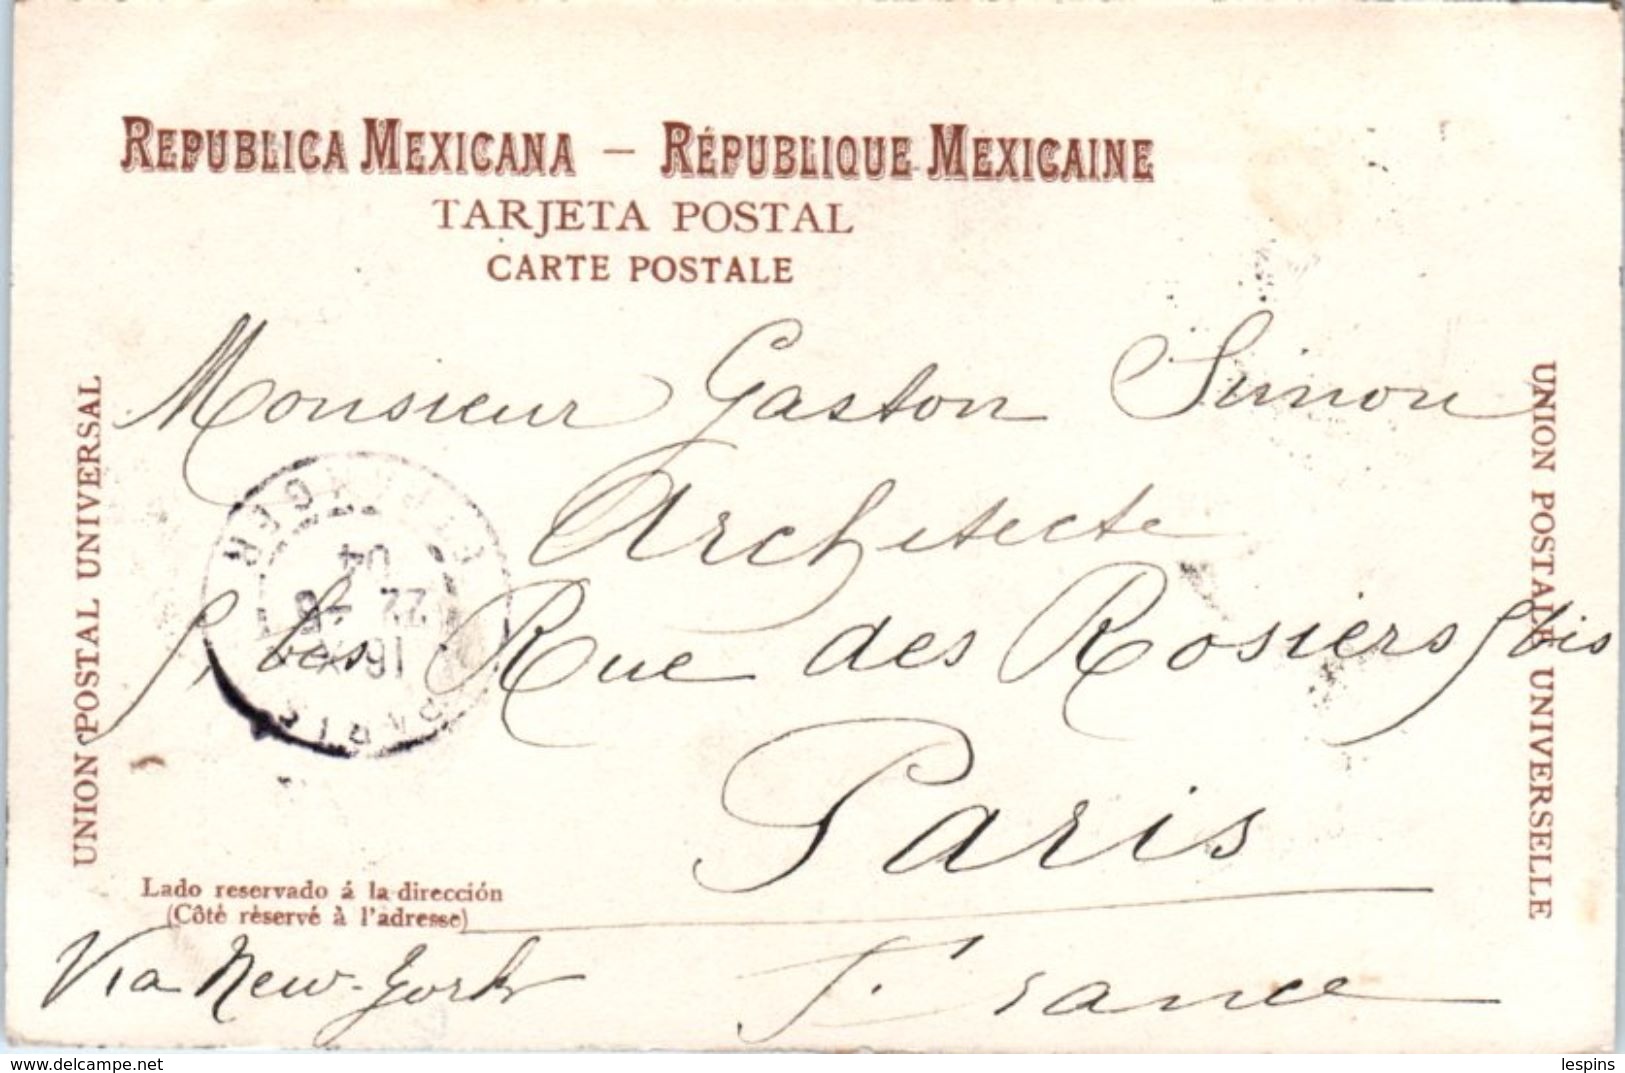 REPUBLICA MEXICANA — RÉPUBLIQUE MEXICAINE
TARJETA POSTAL
CARTE POSTALE
UNION POSTAL UNIVERSAL
UNION POSTALE UNIVERSELLE
Monsieur Gaston Simon
Architecte
9, bis Rue des Rosiers 9 bis
Paris
France
Lado reservado á la dirección
(Côté réservé à l'adresse)
Via New-York
PARIS
16
22
04
ETRANGER
delcampe.net
lespins